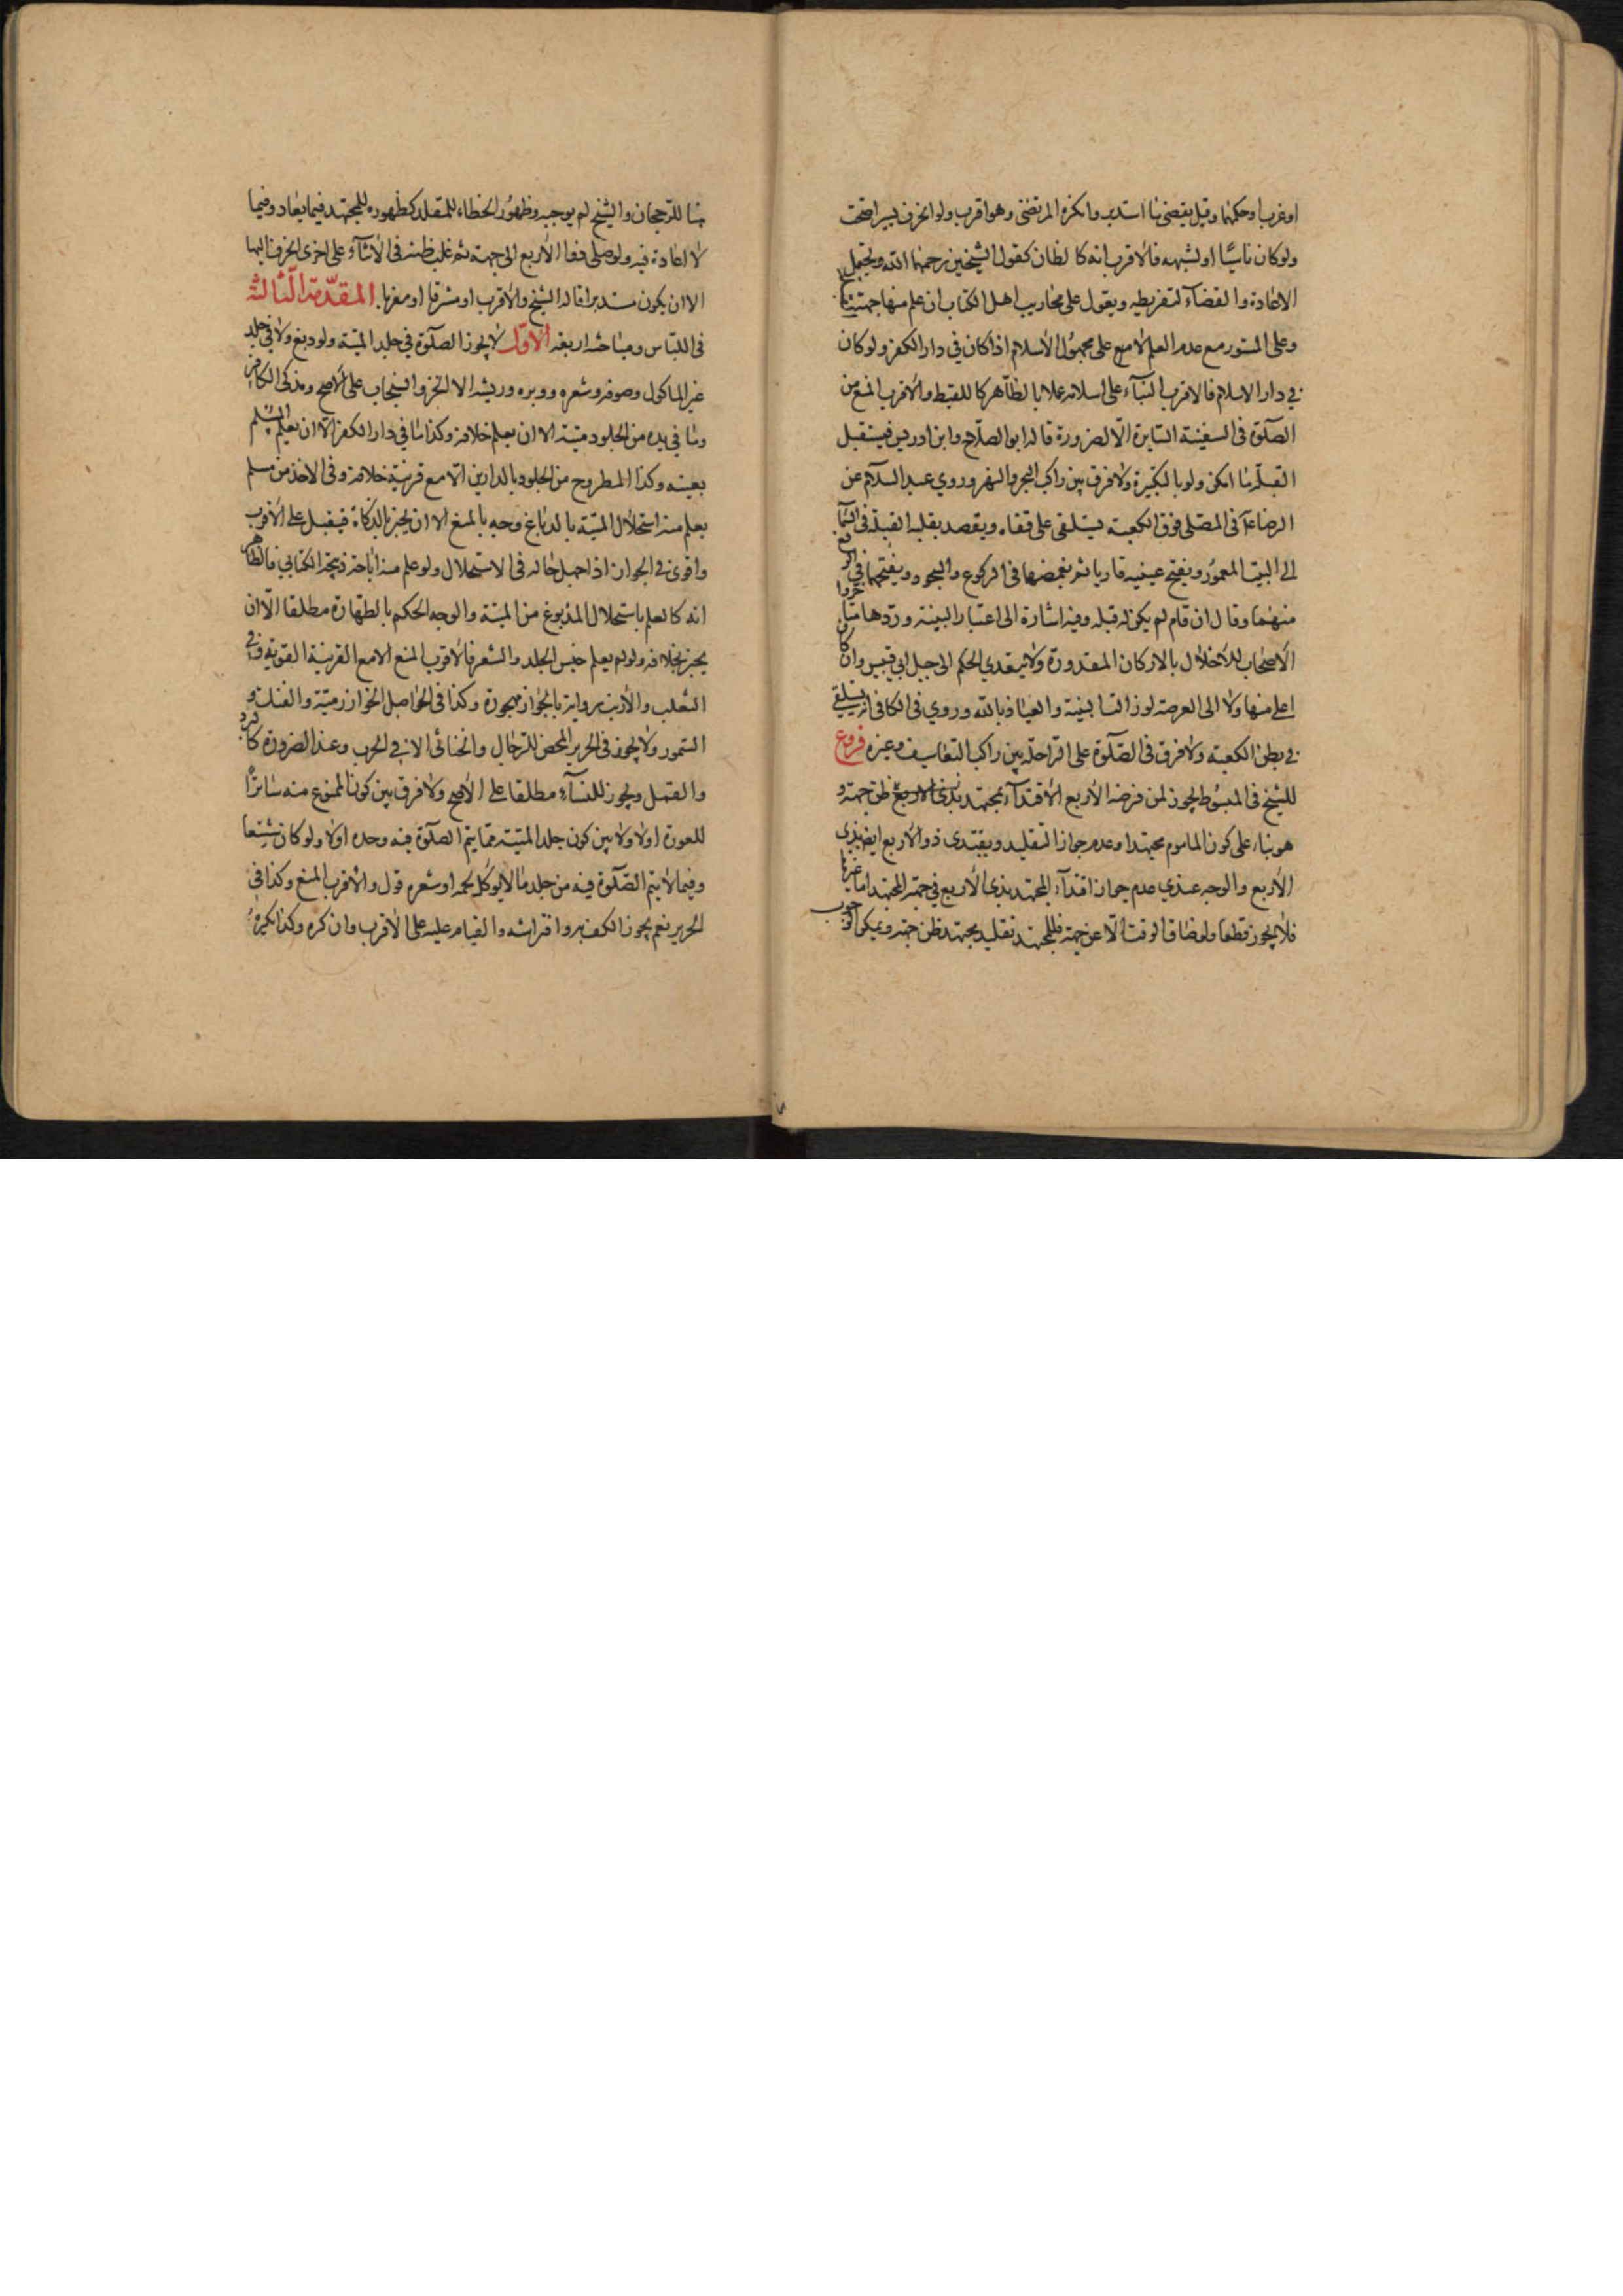 او غربا وحكمها وقيل يقضى ما استدبر وانكره المرتضى وهو اقرب ولو انحرف يسيرا صحت
ولو كان ناسيًا او لشبهه فالاقرب انه كالظان كقول الشيخين رحمهما الله ويحتمل
الاعادة والقضآء لتفريطه ويعول على محاريب اهل الكتاب ان علم منها جهتيناها
وعلى المستور مع عدم العلم لا مع على مجهول الاسلام اذا كان في دار الكفر ولو كان
في دار الاسلام فالاقرب البنآء على اسلامه عملا بالظاهر كاللقيط والاقرب المنع من
الصلوة فى السفينة السايرة الا لضرورة قاله ابو الصلاح وابن ادريس فيستقبل
القبلة ما امكن ولو بالتكبيرة ولا فرق بين راكب البحر والنهر وروي عبد السلام عن
الرضا عآ فى المصلى فوق الكعبة يستلقى على قفاه ويقصد بقلبه القبلة فى السمآ
الى البيت المعمور ويفتح عينيه قاريا ثم يغمضها فى الركوع والسجود ويفتحهما فى الرفع
منهما وقال ان قام لم يكن له قبلة وفيه اشارة الى اعتبار البنية وردها متاخروا
الأصحاب للاخلال بالاركان المقدورة ولا يتعدي الحكم الى جبل ابي قبيس وان كان
اعلى منها ولا الى العرصة لو زالت البنية والعياذ بالله وروي فى الكافى انه يستلقي
في بطن الكعبة ولا فرق فى الصلوة على الراحلة بين راكب التعاسيف وغيره فروع
للشيخ فى المبسوط يجوز لمن فرضه الأربع الأقتدآء بمجتهد بذى الاربع ظن جهته و
هو بناء على كون الماموم مجتهدا وعدم جواز التقليد ويقتدى ذو الاربع ايضا بذى
الأربع والوجه عندي عدم جواز اقتدآء المجتهد بذى الأربع في جهة المجتهد اما غيرها
فلا يجوز قطعا ولو ضاق الوقت الا عن جهة فللمجتهد تقليد مجتهد ظن جهته ويمكن الوجوب
هنا للرجحان والشيخ لم يوجبه وظهور الخطاء للمقلد كظهوره للمجتهد فيما يعاد وفيما
لا اعادة فيه ولو صلى ففا الأربع الى جهة ثم غلب ظنه فى الاثنآء على اخرى انحرف اليها
الا ان يكون مستدبرا قاله الشيخ والاقرب او مشرقا او مغربا. المقدمة الثالثة
فى اللباس ومباحثه اربعة الاول لا يجوز الصلوة في جلد الميتة ولو دبغ ولا في جلد
غير الماكول وصوفه وشعره ووبره وريشه الا الخز والسنجاب على الأصح ومذكى الكافر
وما في يده من الجلود ميتة الا ان يعلم خلافه وكذا ما في دار الكفر الا ان يعلم المسلم
بعينه وكذا المطروح من الجلود بالدارين الا مع قرينة خلافه وفى الاخذ من مسلم
يعلم منه استحلال الميتة بالدباغ وجه بالمنع الا ان يخبر بالذكاة فيقبل على الأقرب
واقوى في الجواز اذا جهل حاله فى الاستحلال ولو علم منه اباحة ذبيحة الكتابي فالظاهر
انه كالعلم باستحلال المدبوغ من الميتة والوجه الحكم بالطهارة مطلقا الا ان
يخبر بخلافه ولو لم يعلم جنس الجلد والشعر فالاقرب المنع الا مع القرينة القوية وفي
الثعلب والأرنب رواية بالجواز مهجورة وكذا فى الحواصل الخوارزمية والفنك و
السمور ولا يجوز فى الحرير المحض للرجال والخناثى الا في الحرب وعند الضرورة كالبرد
والقمل ويجوز للنسآء مطلقا على الأصح ولا فرق بين كون الممنوع منه ساترًا
للعورة اولا ولا بين كون جلد الميتة مما يتم الصلوة فيه وحده اولا ولو كان شسعا
وفيما لا يتم الصلوة فيه من جلد ما لا يوكل لحمه او شعره قول والأقرب المنع وكذا فى
الحرير نعم يجوز الكف به وافتراشه والقيام عليه على الاقرب وان كره وكذا يكره